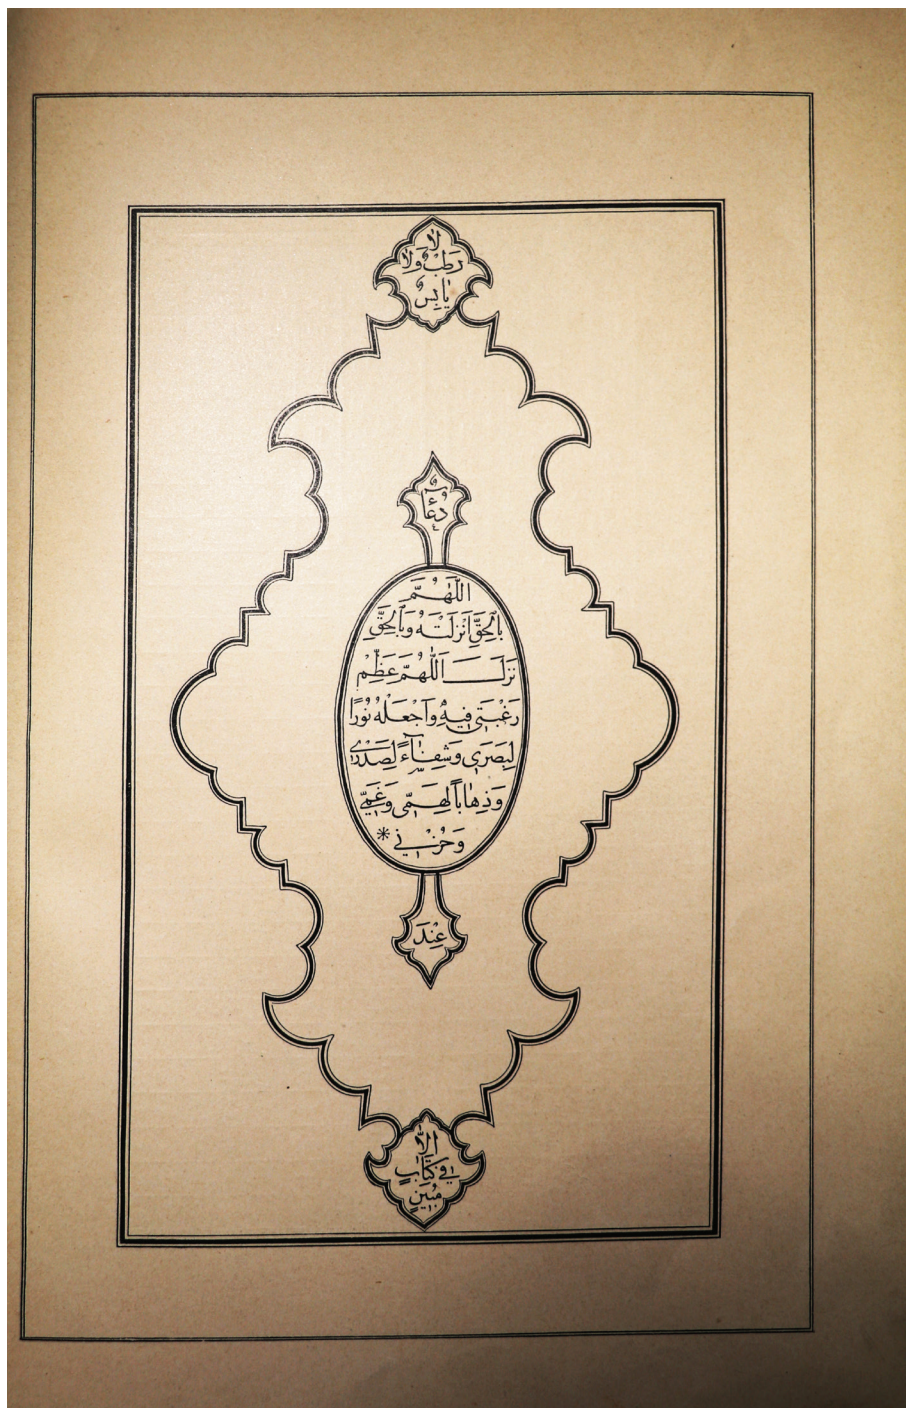 لا
رَطْبٍ وَلا
يَابِسٍ
دُعَاء
اللَّهُمَّ
بِالْحَقِّ أَنْزَلْتَهُ وَبِالْحَقِّ
نَزَلَ اللَّهُمَّ عَظِّمْ
رَغْبَتِي فِيهِ وَاجْعَلْهُ نُورًا
لِبَصَرِي وَشِفَاءً لِصَدْرِي
وَذِهَابًا لِهَمِّي وَغَمِّي
وَحُزْنِي *
إِلَّا
فِي كِتَابٍ
مُبِينٍ